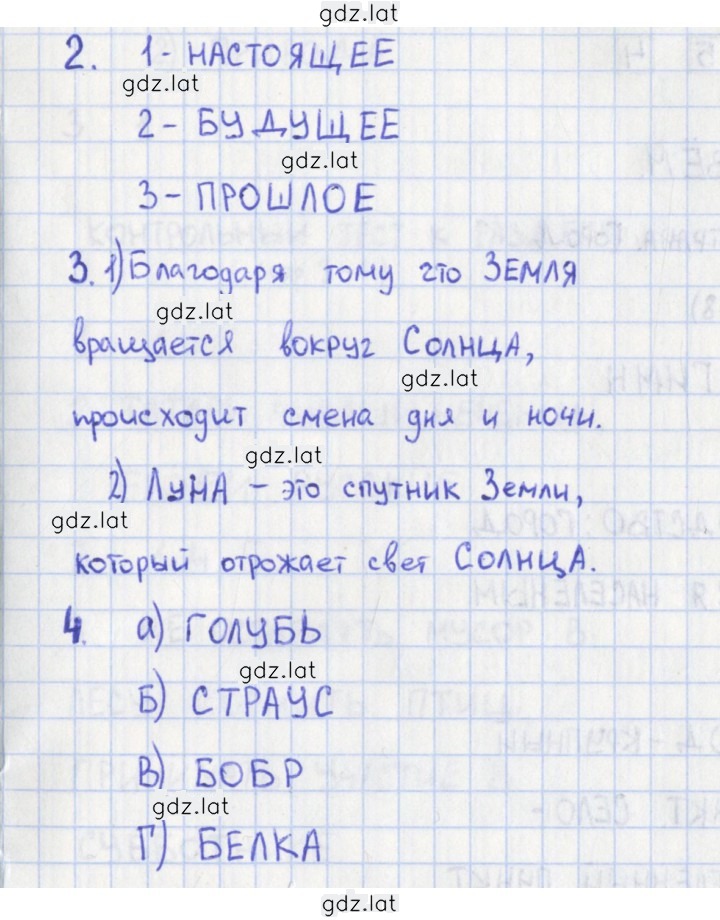 gdz.lat
2. 1- НАСТОЯЩЕЕ
gdz.lat
2- БУДУЩЕЕ
gdz.lat
3- ПРОШЛОЕ
3. 1) Благодаря тому что ЗЕМЛЯ
gdz.lat
вращается вокруг СОЛНЦА,
gdz.lat
происходит смена дня и ночи.
gdz.lat
2) ЛУНА - это спутник Земли,
gdz.lat
который отрожает свет СОЛНЦА.
4. а) ГОЛУБЬ
gdz.lat
Б) СТРАУС
В) БОБР
gdz.lat
Г) БЕЛКА
gdz.lat